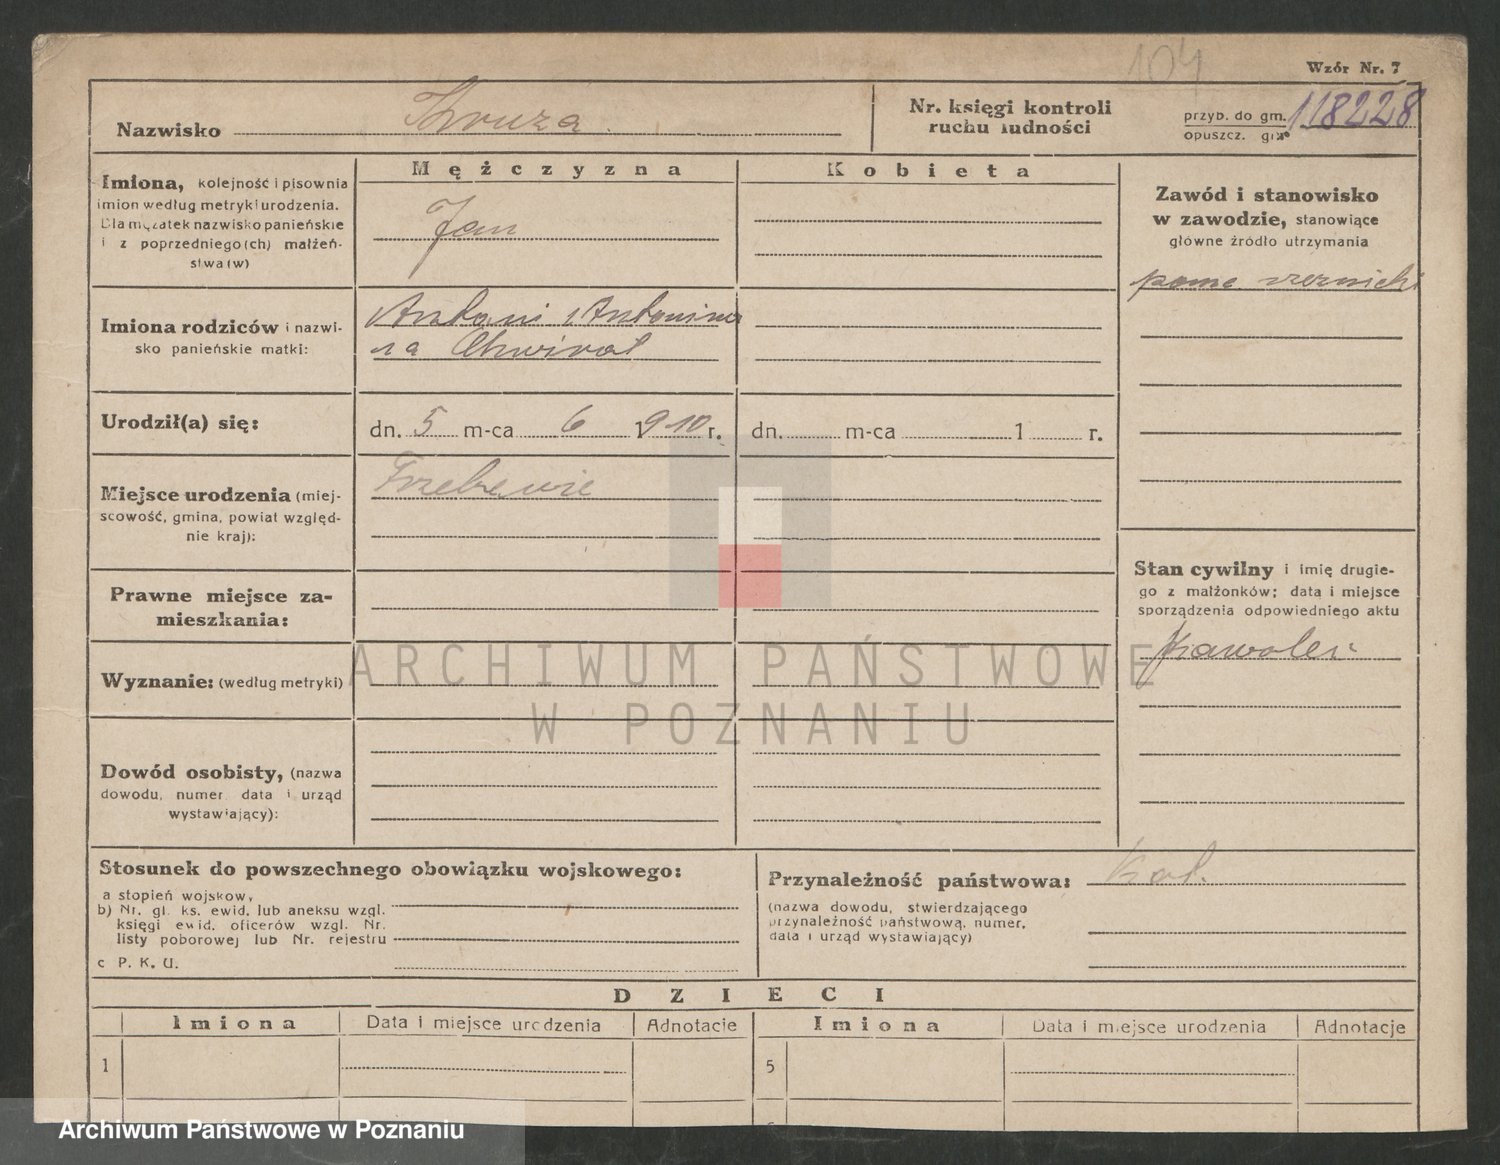 104
Wzór Nr. 7
Nazwisko
Nr. księgi kontroli
ruchu ludności
przyb. do gm. 118228
opuszcz. gm.
Imiona, kolejność i pisownia
imion według metryki urodzenia.
Dla mężatek nazwisko panieńskie
i z poprzedniego(ch) małżeń-
stwa(w)
Mężczyzna
Jan
Kobieta
Zawód i stanowisko
w zawodzie, stanowiące
główne źródło utrzymania
pomc rzeznicki
Imiona rodziców i nazwi-
sko panieńskie matki:
Antoni i Antonina
Chwirot
Urodził(a) się:
dn. 5 m-ca 6 1910 r.
dn. m-ca 1 r.
Miejsce urodzenia (miej-
scowość, gmina, powiat względ-
nie kraj):
Prawne miejsce za-
mieszkania:
Stan cywilny i imię drugie-
go z małżonków; data i miejsce
sporządzenia odpowiedniego aktu
Kawaler
Wyznanie: (według metryki)
Dowód osobisty, (nazwa
dowodu, numer data i urząd
wystawiający):
ARCHIWUM PAŃSTWOWE
W POZNANIU
Stosunek do powszechnego obowiązku wojskowego:
a stopień wojskow,
b) Nr. gl. ks. ewid. lub aneksu wzgl.
księgi ewid. oficerów wzgl. Nr.
listy poborowej lub Nr. rejestru
c P. K. U.
Przynależność państwowa: Kat.
(nazwa dowodu, stwierdzającego
przynależność państwową, numer,
data i urząd wystawiający)
DZIECI
Imiona Data i miejsce urodzenia Adnotacje Imiona Data i miejsce urodzenia Adnotacje
1 5
Archiwum Państwowe w Poznaniu